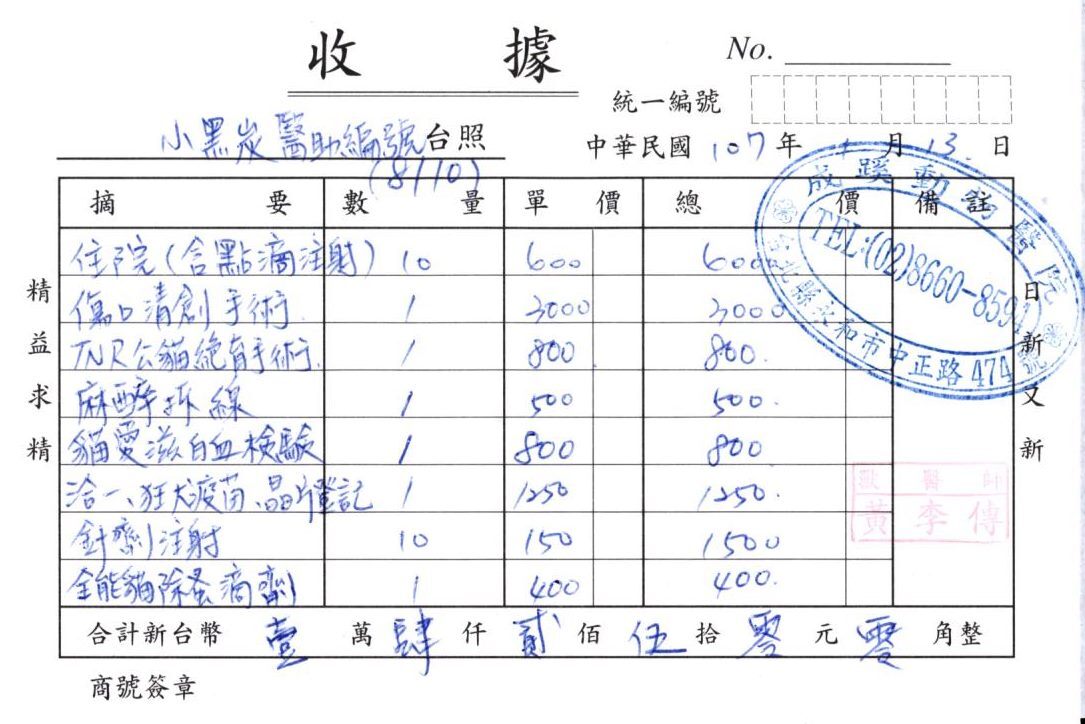 收據
No.
統一編號
小黑炭醫助編號台照
(8110)
中華民國 107 年 1 月 13 日
摘要 數量 單價 總價 備註
住院(含點滴注射) 10 600 6000
傷口清創手術. 1 3000 3000
TNR公貓絕育手術. 1 800 800.
麻醉拆線 1 500 500.
貓愛滋白血檢驗 1 800 800
洽一、狂犬疫苗、晶片登記 1 1250 1250.
針劑注射 10 150 1500
全能貓除蚤滴劑 1 400 400.
合計新台幣 壹 萬 肆 仟 貳 佰 伍 拾 零 元 零 角整
商號簽章
精益求精
日新又新
成蹊動物醫院
TEL:(02)8660-8591
台北縣永和市中正路 474 號
獸醫師
黃李傳